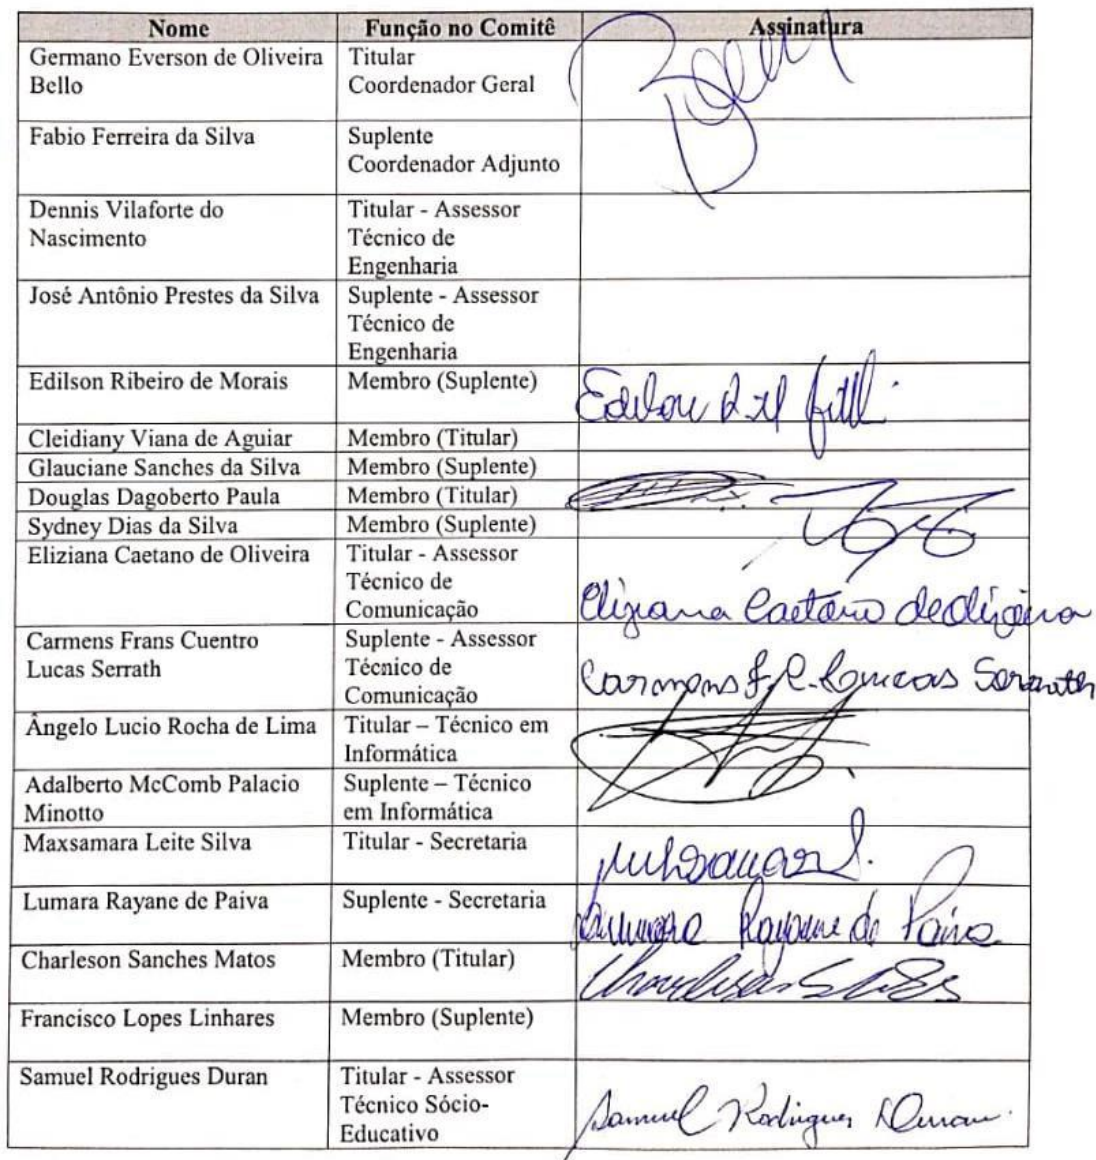 Nome Função no Comitê Assinatura
Germano Everson de Oliveira Titular
Bello Coordenador Geral
Fabio Ferreira da Silva Suplente
Coordenador Adjunto
Dennis Vilaforte do Titular - Assessor
Nascimento Técnico de
Engenharia
José Antônio Prestes da Silva Suplente - Assessor
Técnico de
Engenharia
Edilson Ribeiro de Morais Membro (Suplente)
Cleidiany Viana de Aguiar Membro (Titular)
Glauciane Sanches da Silva Membro (Suplente)
Douglas Dagoberto Paula Membro (Titular)
Sydney Dias da Silva Membro (Suplente)
Eliziana Caetano de Oliveira Titular - Assessor
Técnico de
Comunicação Eliziana Caetano de Oliveira
Carmens Frans Cuentro Suplente - Assessor
Lucas Serrath Técnico de Carmens F. C. Lucas Serrath
Comunicação
Ângelo Lucio Rocha de Lima Titular – Técnico em
Informática
Adalberto McComb Palacio Suplente – Técnico
Minotto em Informática
Maxsamara Leite Silva Titular - Secretaria
Lumara Rayane de Paiva Suplente - Secretaria Lumara Rayane de Paiva
Charleson Sanches Matos Membro (Titular)
Francisco Lopes Linhares Membro (Suplente)
Samuel Rodrigues Duran Titular - Assessor
Técnico Sócio- Samuel Rodrigues Duran
Educativo